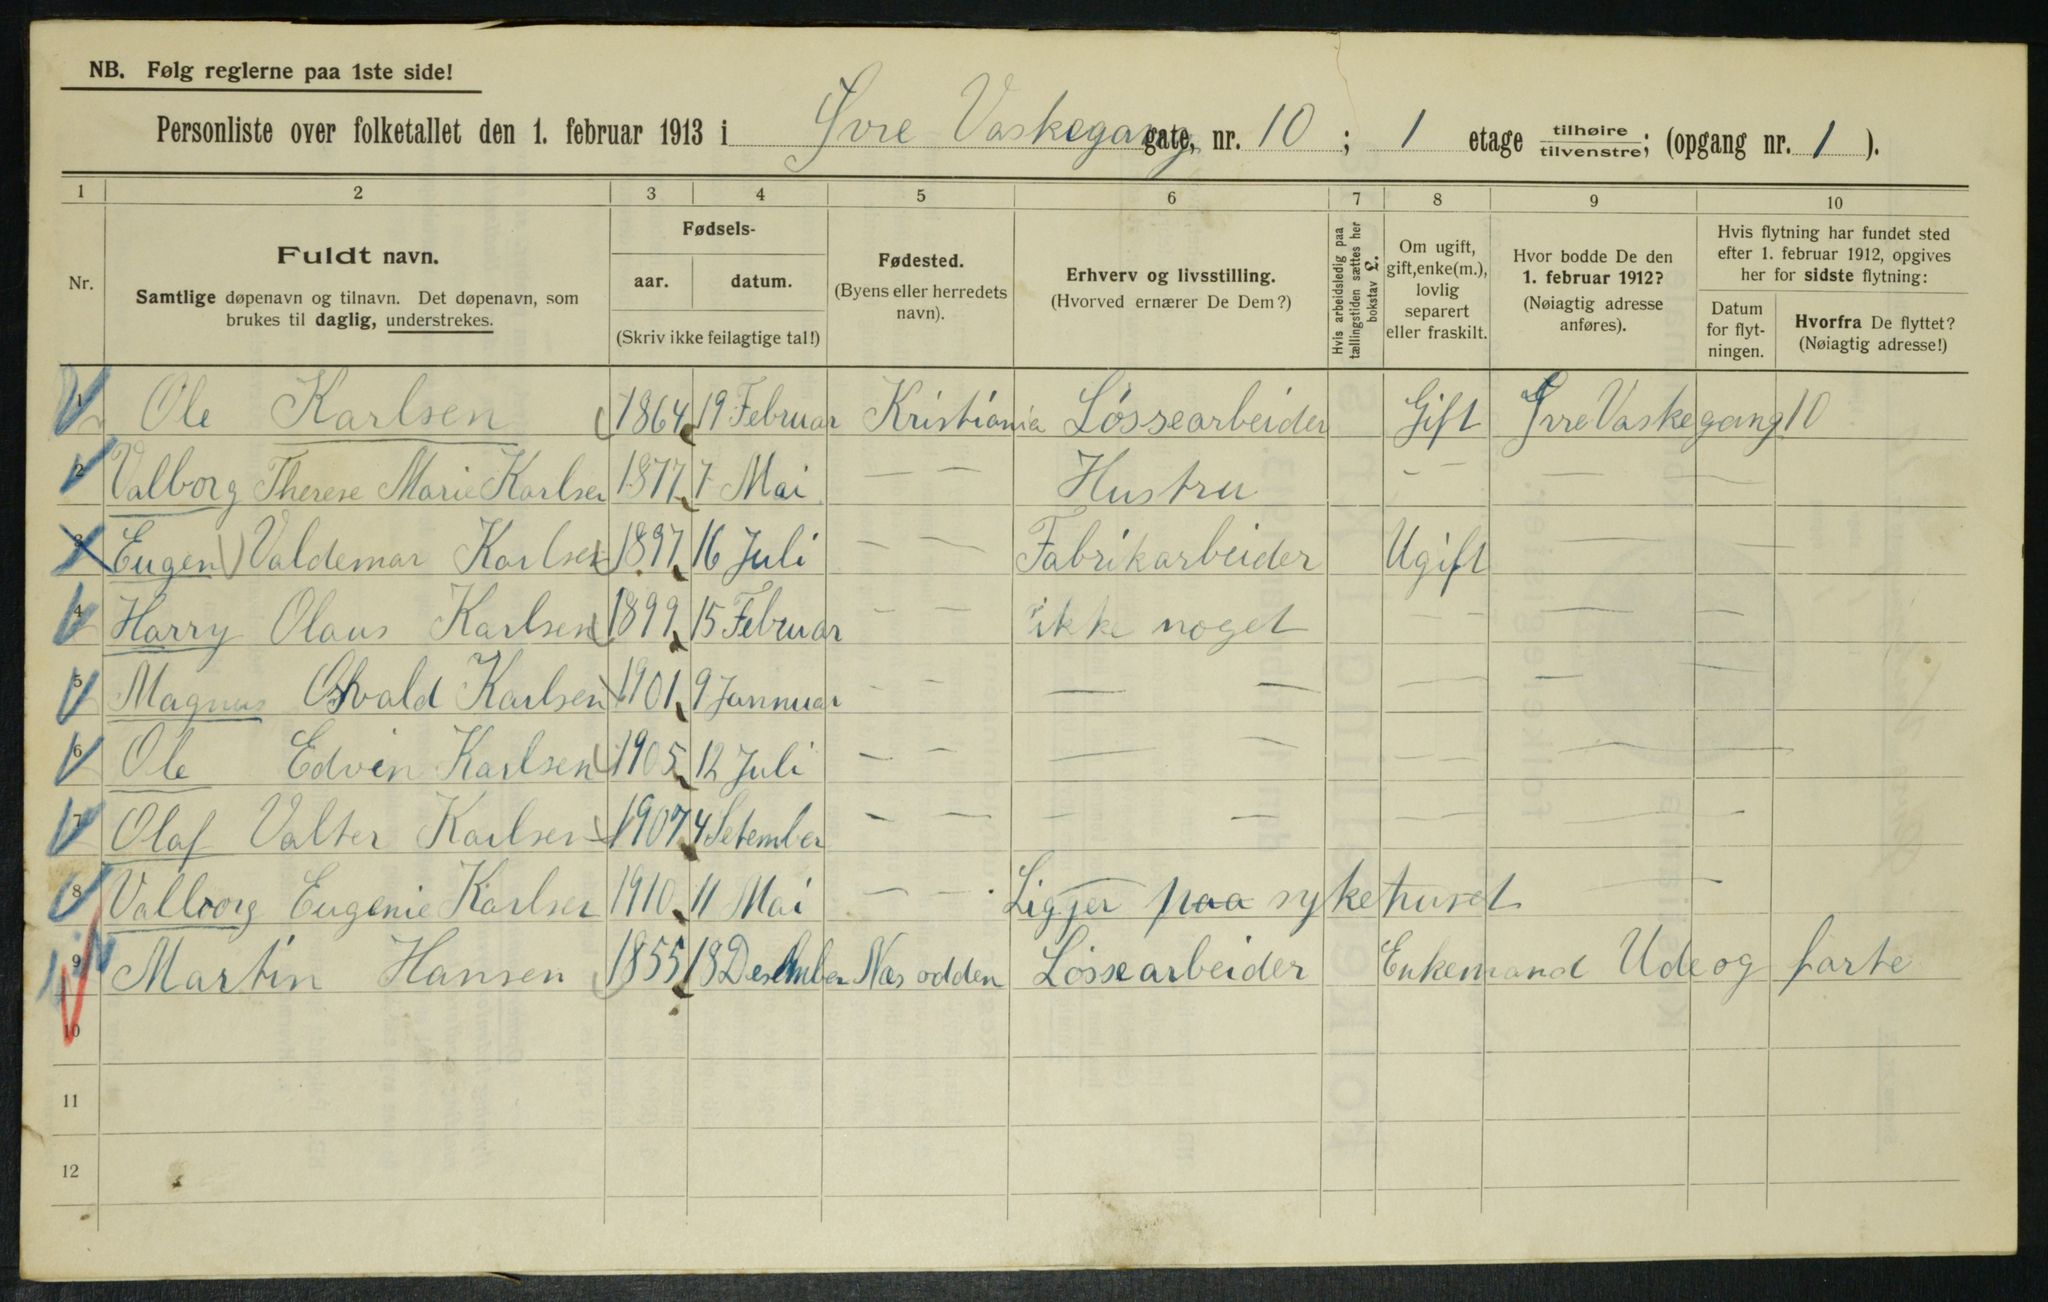 NB. Følg reglerne paa 1ste side!
Personliste over folketallet den 1. februar 1913 i Øvre Vaskegang gate, nr. 10 ; 1 etage tilhøire/tilvenstre; (opgang nr. 1 ).
1 2 3 4 5 6 7 8 9 10
Nr.
Fuldt navn.
Samtlige døpenavn og tilnavn. Det døpenavn, som
brukes til daglig, understrekes.
Fødsels-
aar. datum.
(Skriv ikke feilagtige tal!)
Fødested.
(Byens eller herredets
navn).
Erhverv og livsstilling.
(Hvorved ernærer De Dem?)
Hvis arbeidsledig paa
tællingstiden sættes her
bokstav L.
Om ugift,
gift, enke(m.),
lovlig
separert
eller fraskilt.
Hvor bodde De den
1. februar 1912?
(Nøiagtig adresse
anføres).
Hvis flytning har fundet sted
efter 1. februar 1912, opgives
her for sidste flytning:
Datum
for flyt-
ningen.
Hvorfra De flyttet?
(Nøiagtig adresse!)
1 Ole Karlsen 1864 19 Februar Kristiania Løssearbeider Gift Øvre Vaskegang 10
2 Valborg Therese Marie Karlsen 1877 7 Mai — — Hustru — — — — —
3 Eugen Valdemar Karlsen 1897 16 Juli — — Fabrikarbeider Ugift — —
4 Harry Olaus Karlsen 1899 15 Februar — — ikke noget — — — — —
5 Magnus Osvald Karlsen 1901 9 Jannuar — — — — — — — — —
6 Ole Edvin Karlsen 1905 12 Juli — — — — — — — — —
7 Olaf Valter Karlsen 1907 4 Setember — — — — — — — — —
8 Valborg Eugenie Karlsen 1910 11 Mai — — Ligger paa sykehuset — —
9 Martin Hansen 1855 18 Desember Næsodden Løssearbeider Enkemand Ude og farte
10
11
12